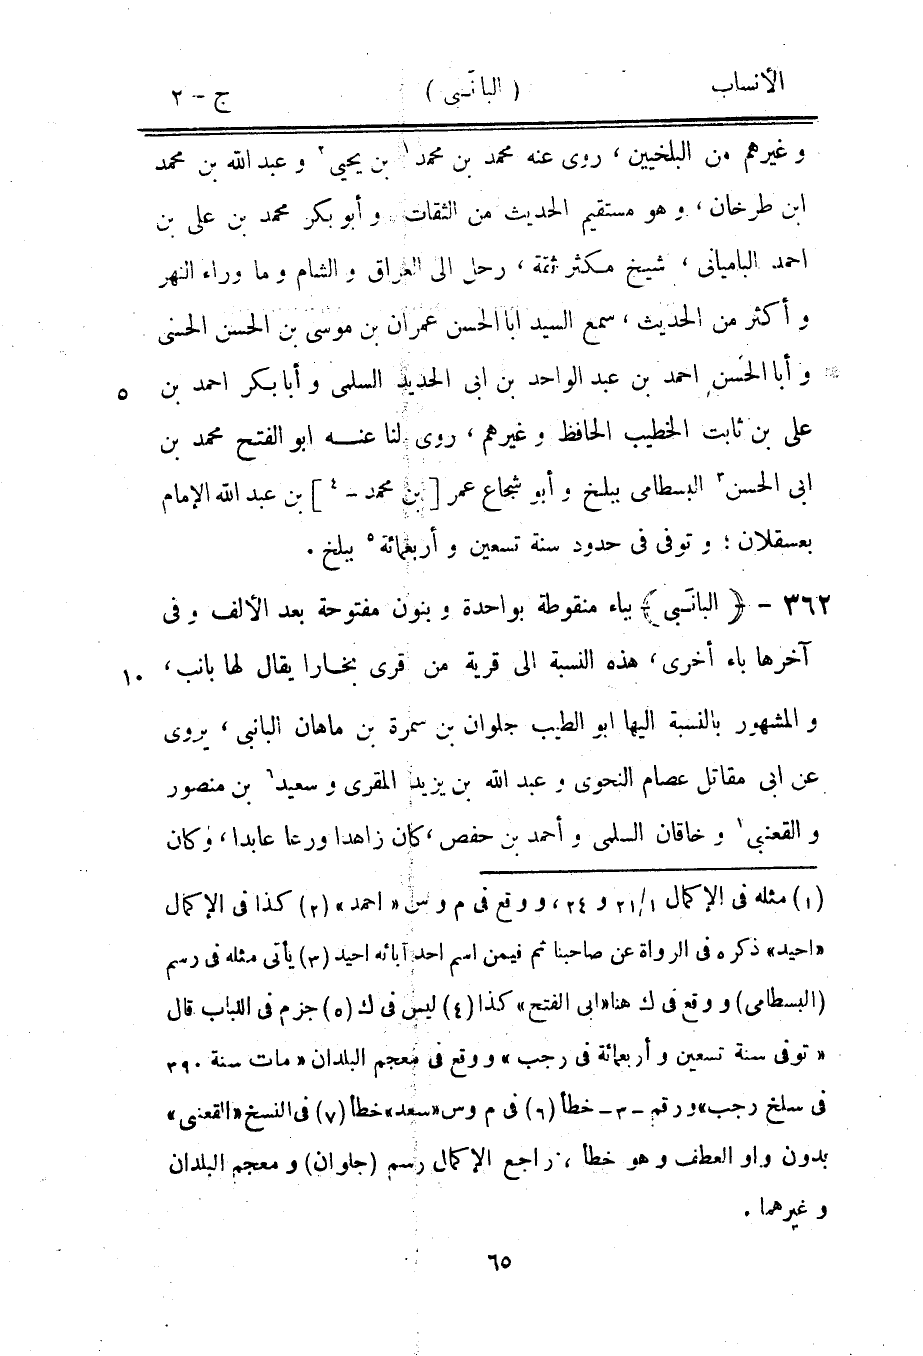 الأنساب ( البانَبى ) ج - ٢
و غيرهم من البلخيين، روى عنه محمد بن محمد١ بن يحيى٢ و عبد الله بن محمد
ابن طرخان، و هو مستقيم الحديث من الثقات و أبو بكر محمد بن على بن
احمد البامیانى، شيخ مكثر ثقة، رحل الى العراق و الشام و ما وراء النهر
و أكثر من الحديث، سمع السيد ابا الحسن عمران بن موسى بن الحسن الحسنى
و أبا الحسن احمد بن عبد الواحد بن ابى الحديد السلمى و أبا بكر احمد بن ٥
على بن ثابت الخطيب الحافظ و غيرهم، روى لنا عنـــه ابو الفتح محمد بن
ابى الحسن٣ البسطامى ببلخ و أبو شجاع عمر [ بن محمد - ٤ ] بن عبد الله الإمام
بعسقلان؛ و توفى فى حدود سنة تسعين و أربعمائة٥ ببلخ.
٣٦٢ - ﴿ البانَبى ﴾ بباء منقوطة بواحدة و بنون مفتوحة بعد الألف و فى
آخرها باء أخرى، هذه النسبة الى قرية من قرى بخارا يقال لها بانب، ١٠
و المشهور بالنسبة اليها ابو الطيب جلوان بن سمرة بن ماهان البانبى، يروى
عن ابى مقاتل عصام النحوى و عبد الله بن يزيد المقرى و سعيد٦ بن منصور
و القعنبى١ و خاقان السلمى و أحمد بن حفص، كان زاهدا ورعا عابدا، وكان
(١) مثله فى الإكمال ٢١/١ و ٢٤، و وقع فى م و س « احمد » (٢) كذا فى الإكمال
«احيد» ذكره فى الرواة عن صاحبنا ثم فيمن اسم احد آبائه احيد (٣) يأتى مثله فى رسم
(البسطامى) و وقع فى ك هنا «ابى الفتح» كذا (٤) ليس فى ك (٥) جزم فى اللباب قال
« توفى سنة تسعين و أربعمائة فى رجب » و وقع فى معجم البلدان « مات سنة ٣٩٠
فى سلخ رجب» و رقم - ٣ - خطأ (٦) فى م و س «سعد» خطأ (٧) فى النسخ «القعنى»
بدون واو العطف و هو خطأ، راجع الإكمال رسم (جلوان) و معجم البلدان
و غيرهما.
٦٥